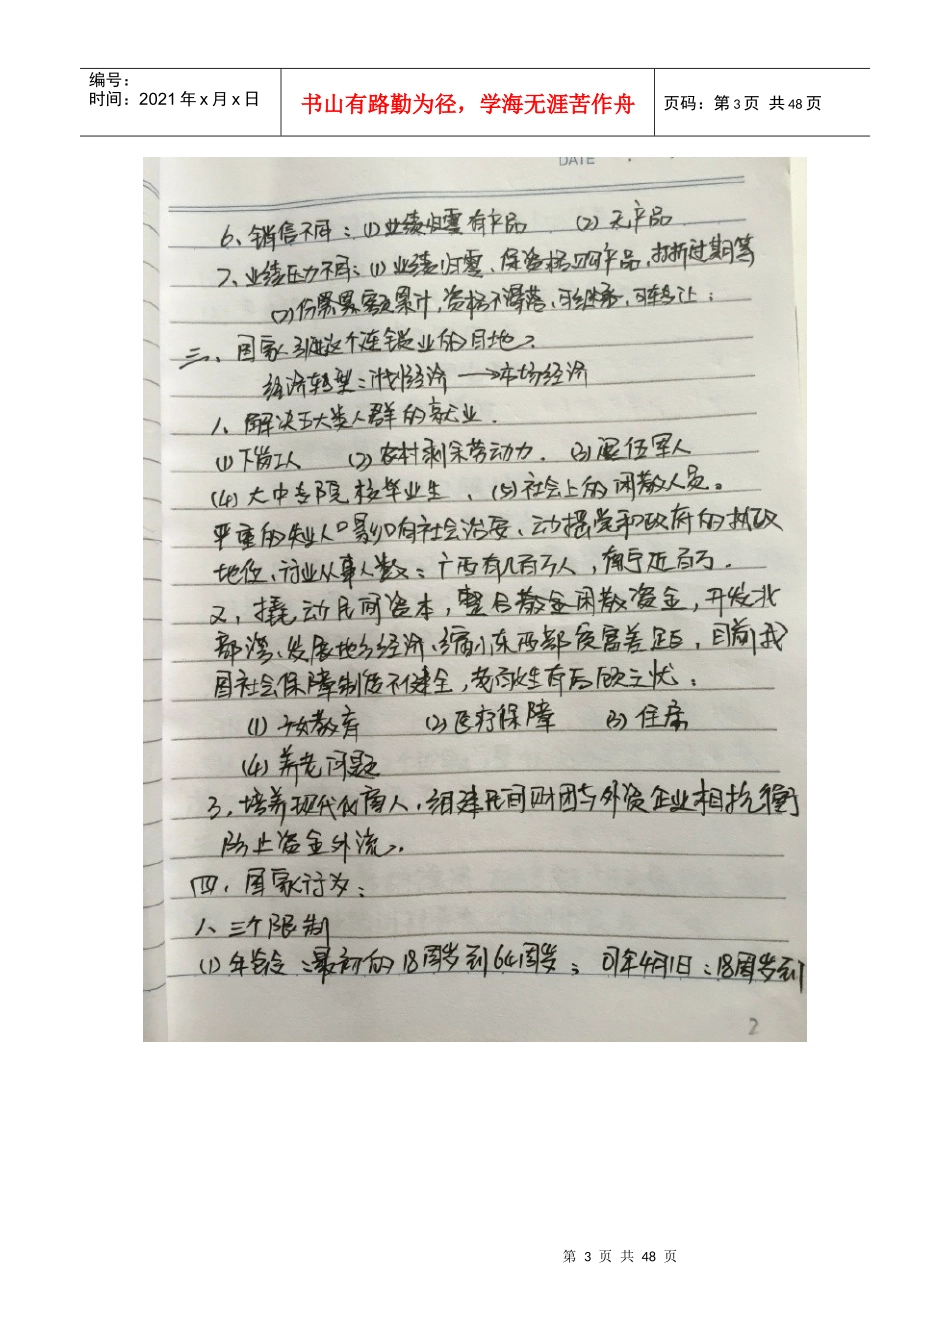 编号：
时间：2021年x月x日
书山有路勤为径，学海无涯苦作舟
页码：第3页 共48页
DATE
6、销售不同：(1)业绩归零有产品 (2)无产品
7、业绩压力不同：(1)业绩归零、保资格买产品，打折过期等
(2)份累累额累计，资格不滑落，可继承，可转让；
三、国家引进这个连锁业的目地？
经济转型：计划经济→市场经济
1、解决五大类人群的就业．
(1)下岗工人 (2)农村剩余劳动力． (3)退伍军人
(4)大中专院校毕业生、(5)社会上的闲散人员。
严重的失业人口影响社会治安、动摇党和政府的执政
地位、行业从事人数：广西有几百万人，南宁近百万．
2，撬动民间资本，整合散金闲散资金，开发北
部湾、发展地乡经济、缩小东西部贫富差距，目前我
国社会保障制度不健全，老百姓有后顾之忧：
(1)子女教育 (2)医疗保障 (3)住房
(4)养老问题
3，培养现代化商人，组建民间财团与外资企业相抗衡
防止资金外流？
四、国家行为：
1、三个限制
(1)年龄：最初的18周岁到64周岁； 01年4月1日：18周岁到
2
第 3 页 共 48 页